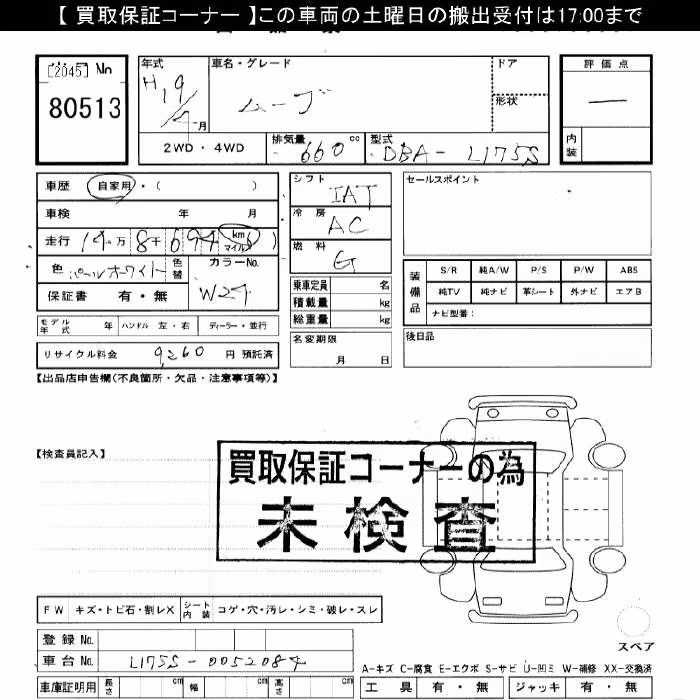 【 買取保証コーナー 】この車両の土曜日の搬出受付は17:00まで
[2045] No
80513
年式
H19/4月
車名・グレード
ムーブ
ドア
形状
評価点
―
内装
2WD・4WD
排気量 660 cc
型式 DBA- L175S
車歴 自家用・( )
車検 年 月
走行 14万8千694 km マイル
色 パールホワイト
色替
カラーNo. W24
保証書 有・無
シフト IAT
冷房 AC
燃料 G
乗車定員 名
積載量 kg
総重量 kg
セールスポイント
装備品
S/R 純A/W P/S P/W ABS
純TV 純ナビ 革シート 外ナビ エアB
ナビ型番：
モデル年式 年 ハンドル 左・右 ディーラー・並行
名変期限 月 日
後日品
リサイクル料金 9,260 円 預託済
【出品店申告欄(不良箇所・欠品・注意事項等)】
【検査員記入】
買取保証コーナーの為
未検査
FW キズ・トビ石・割レX
シート内装 コゲ・穴・汚レ・シミ・破レ・スレ
スペア
登録 No.
車台 No. L175S-0052084
A-キズ C-腐食 E-エクボ S-サビ U-凹ミ W-補修 XX-交換済
車庫証明用 長さ cm 幅 cm 高さ cm
工具 有・無 ジャッキ 有・無